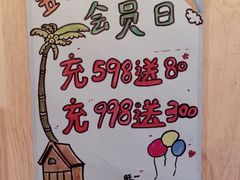 会员日
充598送80
充998送300